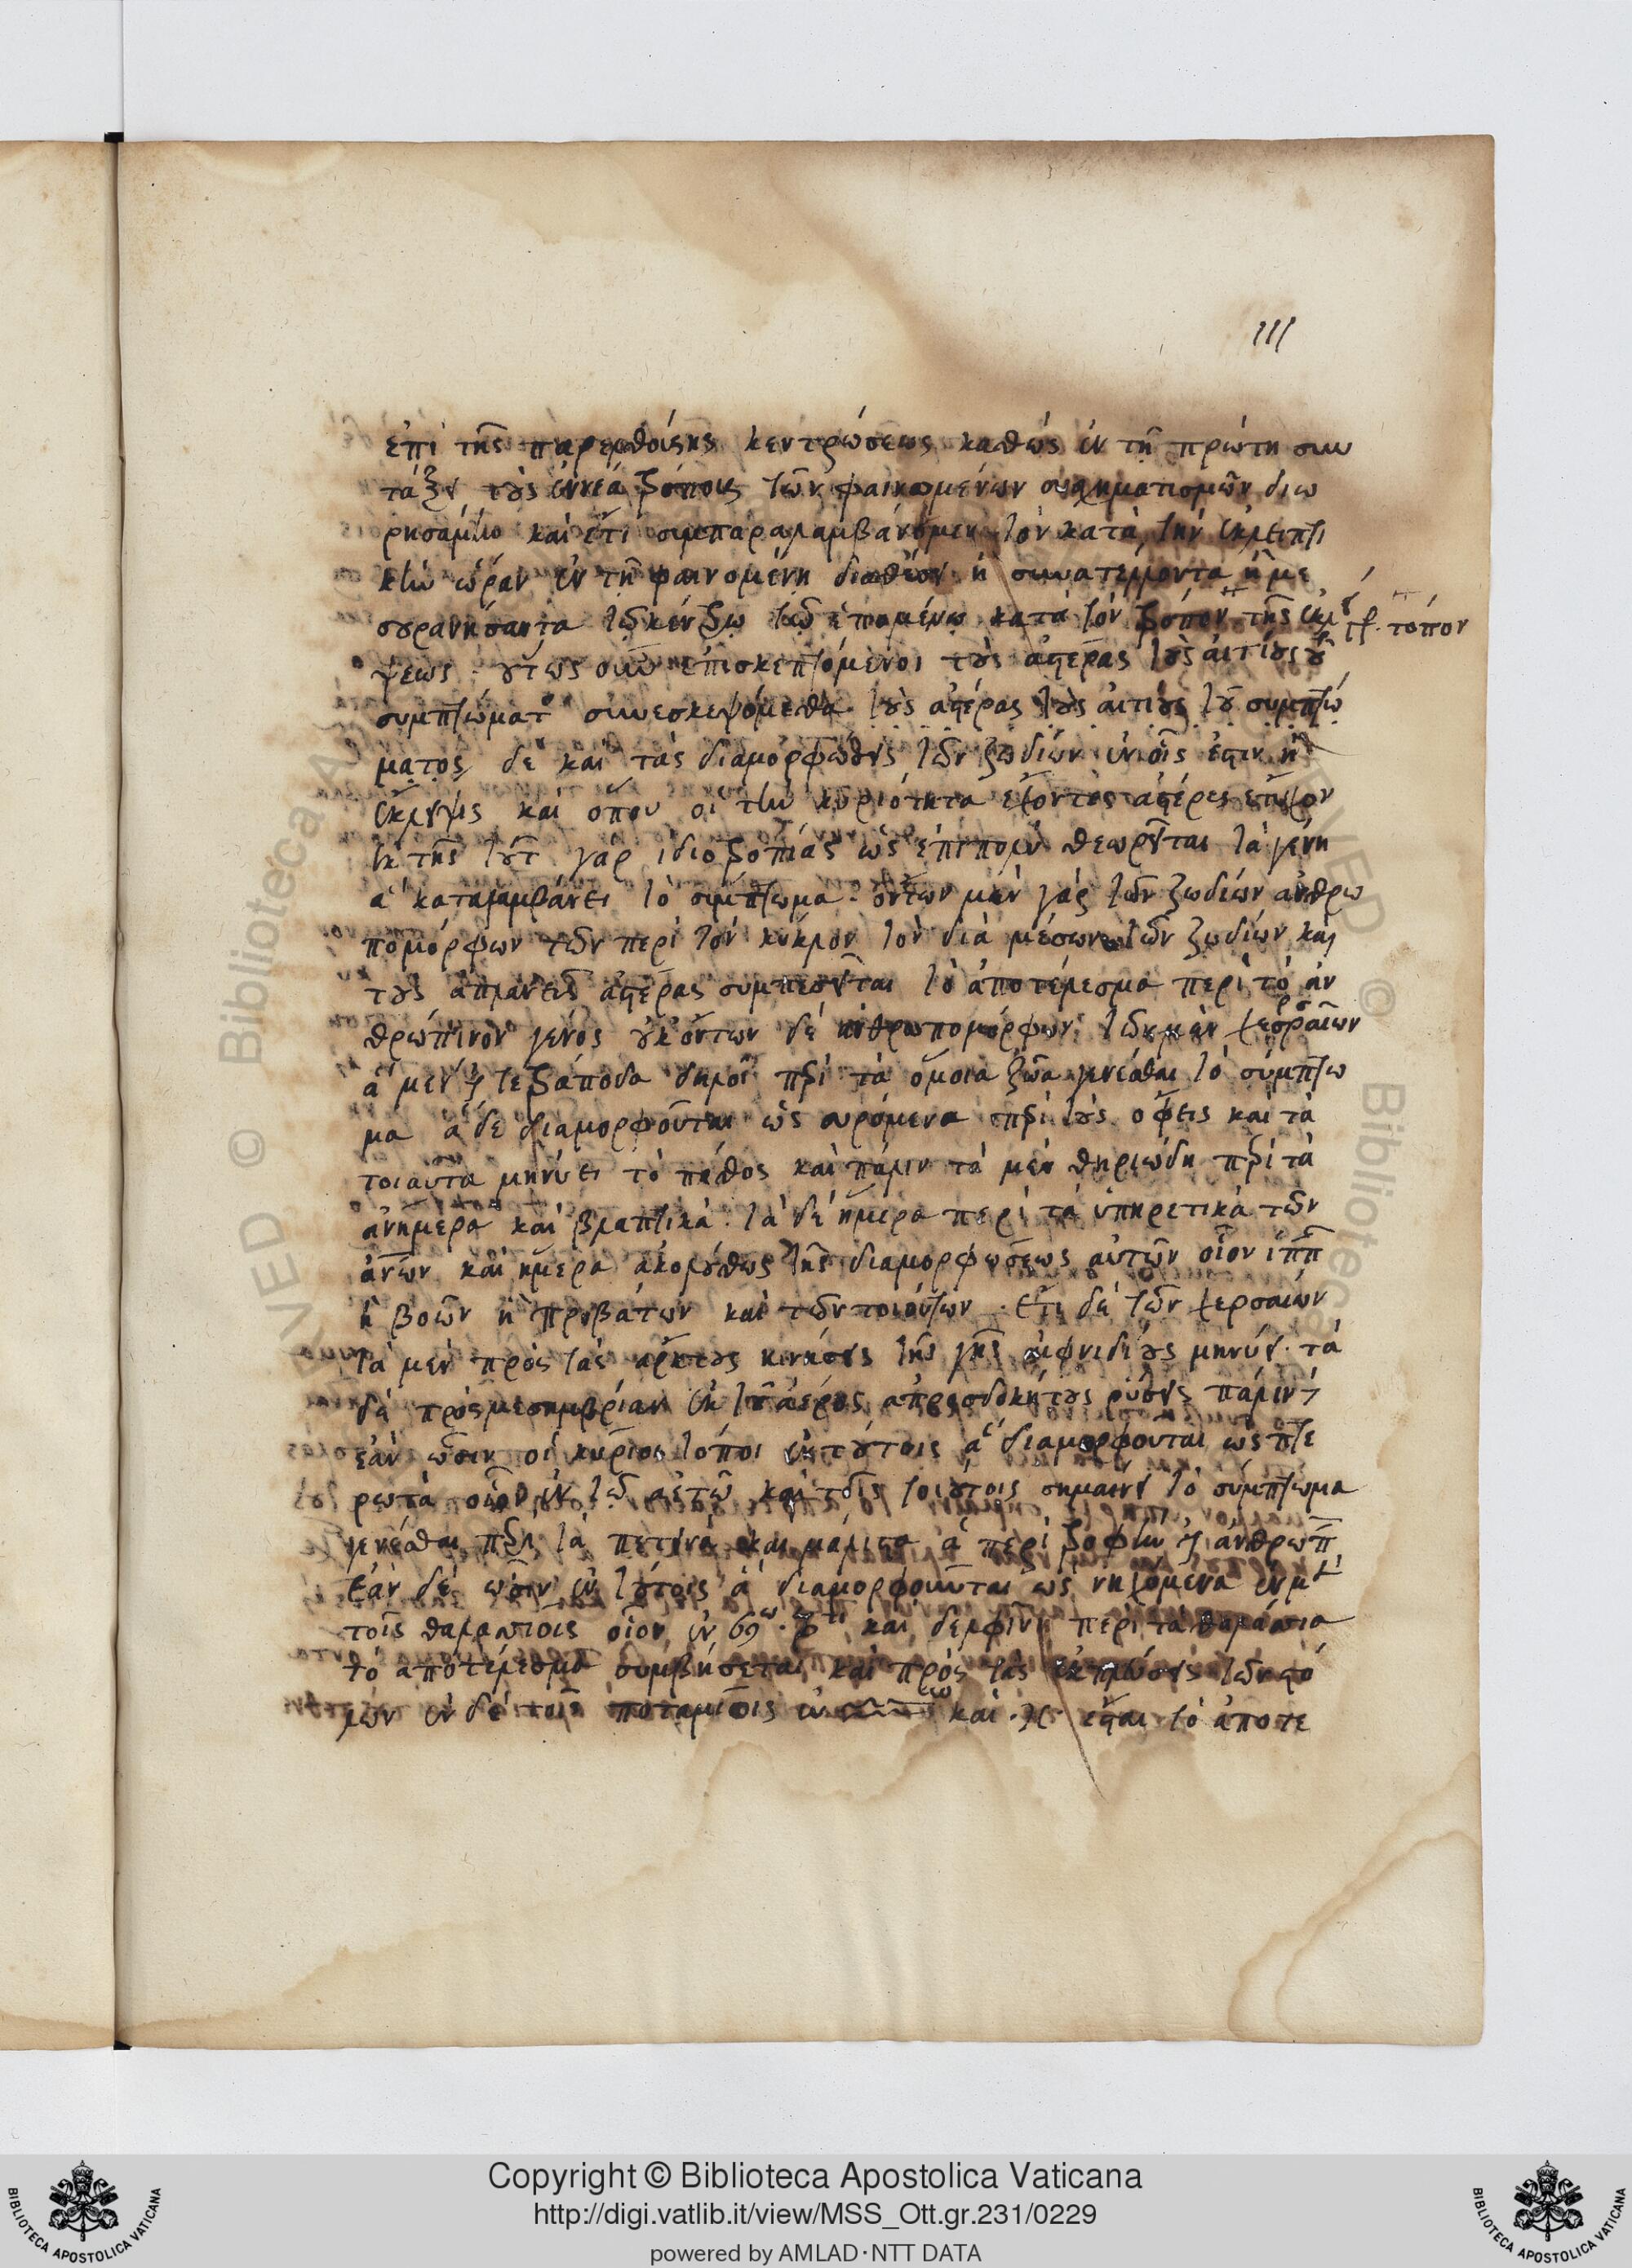 111
ἐπὶ τῆς παρελθούσης κεντρώσεως καθὼς ἐν τῇ πρώτῃ συν
τάξει τοὺς ἐννέα τρόπους τῶν φαινομένων σχηματισμῶν διω
ρησάμην καὶ ἔτι συμπαραλαμβάνομεν τὸν κατὰ τὴν ἐκλειπτι
κὴν ὥραν ἐν τῇ φαινομένῃ διαθέσει ἢ συνανατέλλοντα ἢ με
σουρανήσαντα τῷ κέντρῳ τῷ ἑπομένῳ κατὰ τὸν τρόπον τῆς ἐκλεί
τόπον
ψεως · οὕτως οὖν ἐπισκεπτόμενοι τοὺς ἀστέρας τοὺς αἰτίους τοῦ
συμπτώματος συνεσκεψόμεθα τοὺς ἀστέρας τοὺς αἰτίους τοῦ συμπτώ
ματος δὲ καὶ τὰς διαμορφώσεις τῶν ζωδίων ἐν οἷς ἐστιν ἡ
ἔκλειψις καὶ ὅπου οἱ τὴν κυριότητα ἔχοντες ἀστέρες
ἐκ τῆς τούτων γὰρ ἰδιοτροπίας ὡς ἐπὶ πολὺ θεωρεῖται τὰ γένη
ἃ καταλαμβάνει τὸ σύμπτωμα · ὄντων μὲν γὰρ τῶν ζωδίων ἀνθρω
πομόρφων τῶν περὶ τὸν κύκλον τὸν διὰ μέσων τῶν ζωδίων καὶ
τοὺς ἀπλανεῖς ἀστέρας συμπεσεῖται τὸ ἀποτέλεσμα περὶ τὸ ἀν
θρώπινον γένος οὐκ ὄντων δὲ ἀνθρωπομόρφων τῶν μὲν χερσαίων
ἃ μέν εἰσι τετράποδα δηλοῖ περὶ τὰ ὅμοια ζῷα γενέσθαι τὸ σύμπτω
μα ἃ δὲ διαμορφοῦνται ὡς συρόμενα περὶ τοὺς ὄφεις καὶ τὰ
τοιαῦτα μηνύει τὸ πάθος καὶ πάλιν τὰ μὲν θηριώδη περὶ τὰ
ἀνήμερα καὶ βλαπτικὰ · τὰ δὲ ἥμερα περὶ τὰ ὑπηρετικὰ τῶν
ἀνων καὶ ἥμερα ἀκολούθως τῆς διαμορφώσεως αὐτῶν οἷον ἵππ
ἢ βοῶν ἢ προβάτων καὶ τῶν τοιούτων · ἔτι δὲ τῶν χερσαίων
τὰ μὲν πρὸς τὰς ἄρκτους κινήσεις τῆς γῆς αἰφνιδίους μηνύει · τὰ
δὲ πρὸς μεσημβρίαν ἐκ τοῦ ἀέρος ἀπροσδοκήτους ῥύσεις πάλιν
ἐὰν ὦσιν οἱ κύριοι τόποι ἐν τούτοις ἃ διαμορφοῦνται ὡς πτε
ρωτὰ οἷον ἐν τῷ ἀετῷ καὶ τοῖς τοιούτοις σημαίνει τὸ σύμπτωμα
γενέσθαι περὶ τὰ πετεινὰ καὶ μάλιστα ἃ περὶ τροφὴν ἀνθρώπ
ἐὰν δὲ ὦσιν ἐν τούτοις ἃ διαμορφοῦνται ὡς νηχόμενα ἐν μὲν
τοῖς θαλασσίοις οἷον ἐν ♋ω · ♑τι καὶ δελφῖνι περὶ τὰ θαλάσσια
τὸ ἀποτέλεσμα συμβήσεται καὶ πρὸς τὰς ἐκπλώσεις τῶν στό
λων ἐν δὲ τοῖς ποταμίοις ἐν ♒ω καὶ · ♓ · ἔσται τὸ ἀποτε
Copyright © Biblioteca Apostolica Vaticana
http://digi.vatlib.it/view/MSS_Ott.gr.231/0229
powered by AMLAD·NTT DATA
BIBLIOTECA APOSTOLICA VATICANA
BIBLIOTECA APOSTOLICA VATICANA